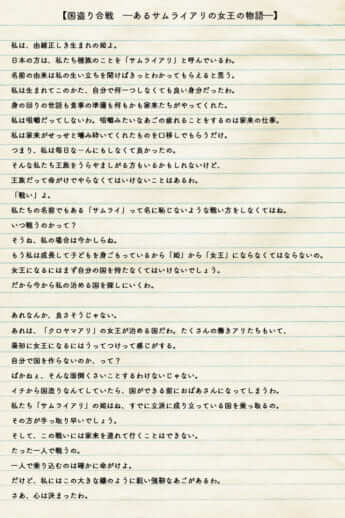 【国盗り合戦　―あるサムライアリの女王の物語―】
私は、由緒正しき生まれの姫よ。
日本の方は、私たち種族のことを「サムライアリ」と呼んでいるわ。
名前の由来は私の生い立ちを聞けばきっとわかってもらえると思う。
私は生まれてこのかた、自分で何一つしなくても良い身分だったわ。
身の回りの世話も食事の準備も何もかも家来たちがやってくれた。
私は咀嚼だってしないわ。咀嚼みたいなあごの疲れることをするのは家来の仕事。
私は家来がせっせと噛み砕いてくれたものを口移しでもらうだけ。
つまり、私は毎日な～んにもしなくて良かったの。
そんな私たち王族をうらやましがる方もいるかもしれないけど、
王族だって命がけでやらなくてはいけないことはあるわ。
「戦い」よ。
私たちの名前でもある「サムライ」って名に恥じないような戦い方をしなくてはね。
いつ戦うのかって？
そうね、私の場合は今かしらね。
もう私は成長して子どもを身ごもっているから「姫」から「女王」にならなくてはならないの。
女王になるにはまず自分の国を持たなくてはいけないでしょう。
だから今から私の治める国を探しにいくわ。
あれなんか、良さそうじゃない。
あれは、「クロヤマアリ」の女王が治める国だわ。たくさんの働きアリたちもいて、
最初に女王になるにはうってつけって感じがする。
自分で国を作らないのか、って？
ばかねぇ、そんな面倒くさいことするわけないじゃない。
イチから国造りなんてしていたら、国ができる前におばあさんになってしまうわ。
私たち「サムライアリ」の姫はね、すでに立派に成り立っている国を乗っ取るの。
その方が手っ取り早いでしょう。
そして、この戦いには家来を連れて行くことはできない。
たった一人で戦うの。
一人で乗り込むのは確かに命がけよ。
だけど、私にはこの大きな鎌のように鋭い強靭なあごがあるわ。
さあ、心は決まったわ。